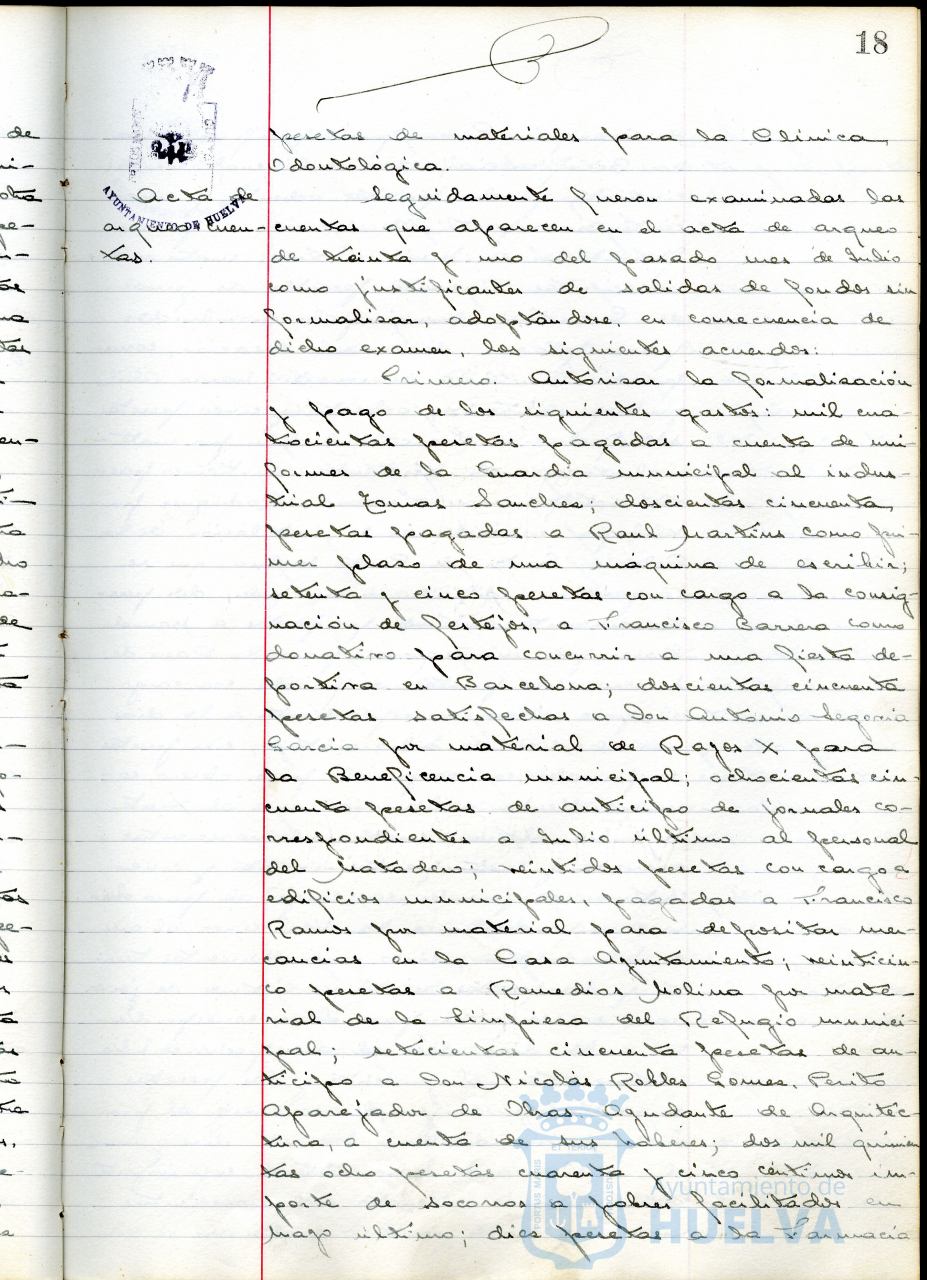 18
pesetas de materiales para la Clínica
Odontológica.
AYUNTAMIENTO DE HUELVA
Acta de
arqueo cuen-
tas.
Seguidamente fueron examinadas las
cuentas que aparecen en el acta de arqueo
de treinta y uno del pasado mes de Julio
como justificantes de salidas de fondos sin
formalizar, adoptándose, en consecuencia de
dicho examen, los siguientes acuerdos:
Primero. Autorizar la formalización
y pago de los siguientes gastos: mil cua-
trocientas pesetas pagadas a cuenta de uni-
formes de la Guardia municipal al indus-
trial Tomas Sanchez; doscientas cincuenta
pesetas pagadas a Raul Martins como pri-
mer plazo de una máquina de escribir;
setenta y cinco pesetas con cargo a la consig-
nación de festejos, a Francisco Barrera como
donativo para concurrir a una fiesta de-
portiva en Barcelona; doscientas cincuenta
pesetas satisfechas a Don Antonio Segovia
Garcia por material de Rayos X para
la Beneficencia municipal; ochocientas cin-
cuenta pesetas de anticipo de jornales co-
rrespondientes a Julio último al personal
del Matadero; veintidos pesetas con cargo a
edificios municipales, pagadas a Francisco
Ramos por material para depositar mer-
cancias en la Casa Ayuntamiento; veinticin-
co pesetas a Remedios Molina por mate-
rial de la limpieza del Refugio munici-
pal; setecientas cincuenta pesetas de an-
ticipo a Don Nicolás Robles Gomez, Perito
Aparejador de Obras Ayudante de Arquitec-
tura, a cuenta de sus haberes; dos mil quinien
tas ocho pesetas cuarenta y cinco céntimos im-
porte de socorros a pobres facilitados en
Mayo último; diez pesetas a la Farmacia
Ayuntamiento de
HUELVA